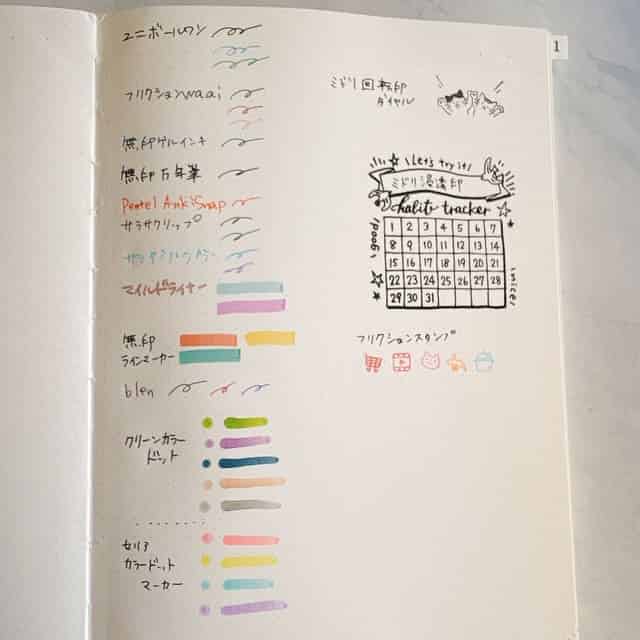 ユニボールワン
フリクションwaai
無印ゲルインキ
無印万年筆
Pentel Ank!Snap
サラサクリップ
マイルドライナー
無印
ラインマーカー
blen
クリーンカラー
ドット
セリア
カラードット
マーカー
1
ミドリ回転印
ダイヤル
Let's try it!
ミドリ浸透印
habit tracker
good!
nice!
1 2 3 4 5 6 7
8 9 10 11 12 13 14
15 16 17 18 19 20 21
22 23 24 25 26 27 28
29 30 31
フリクションスタンプ